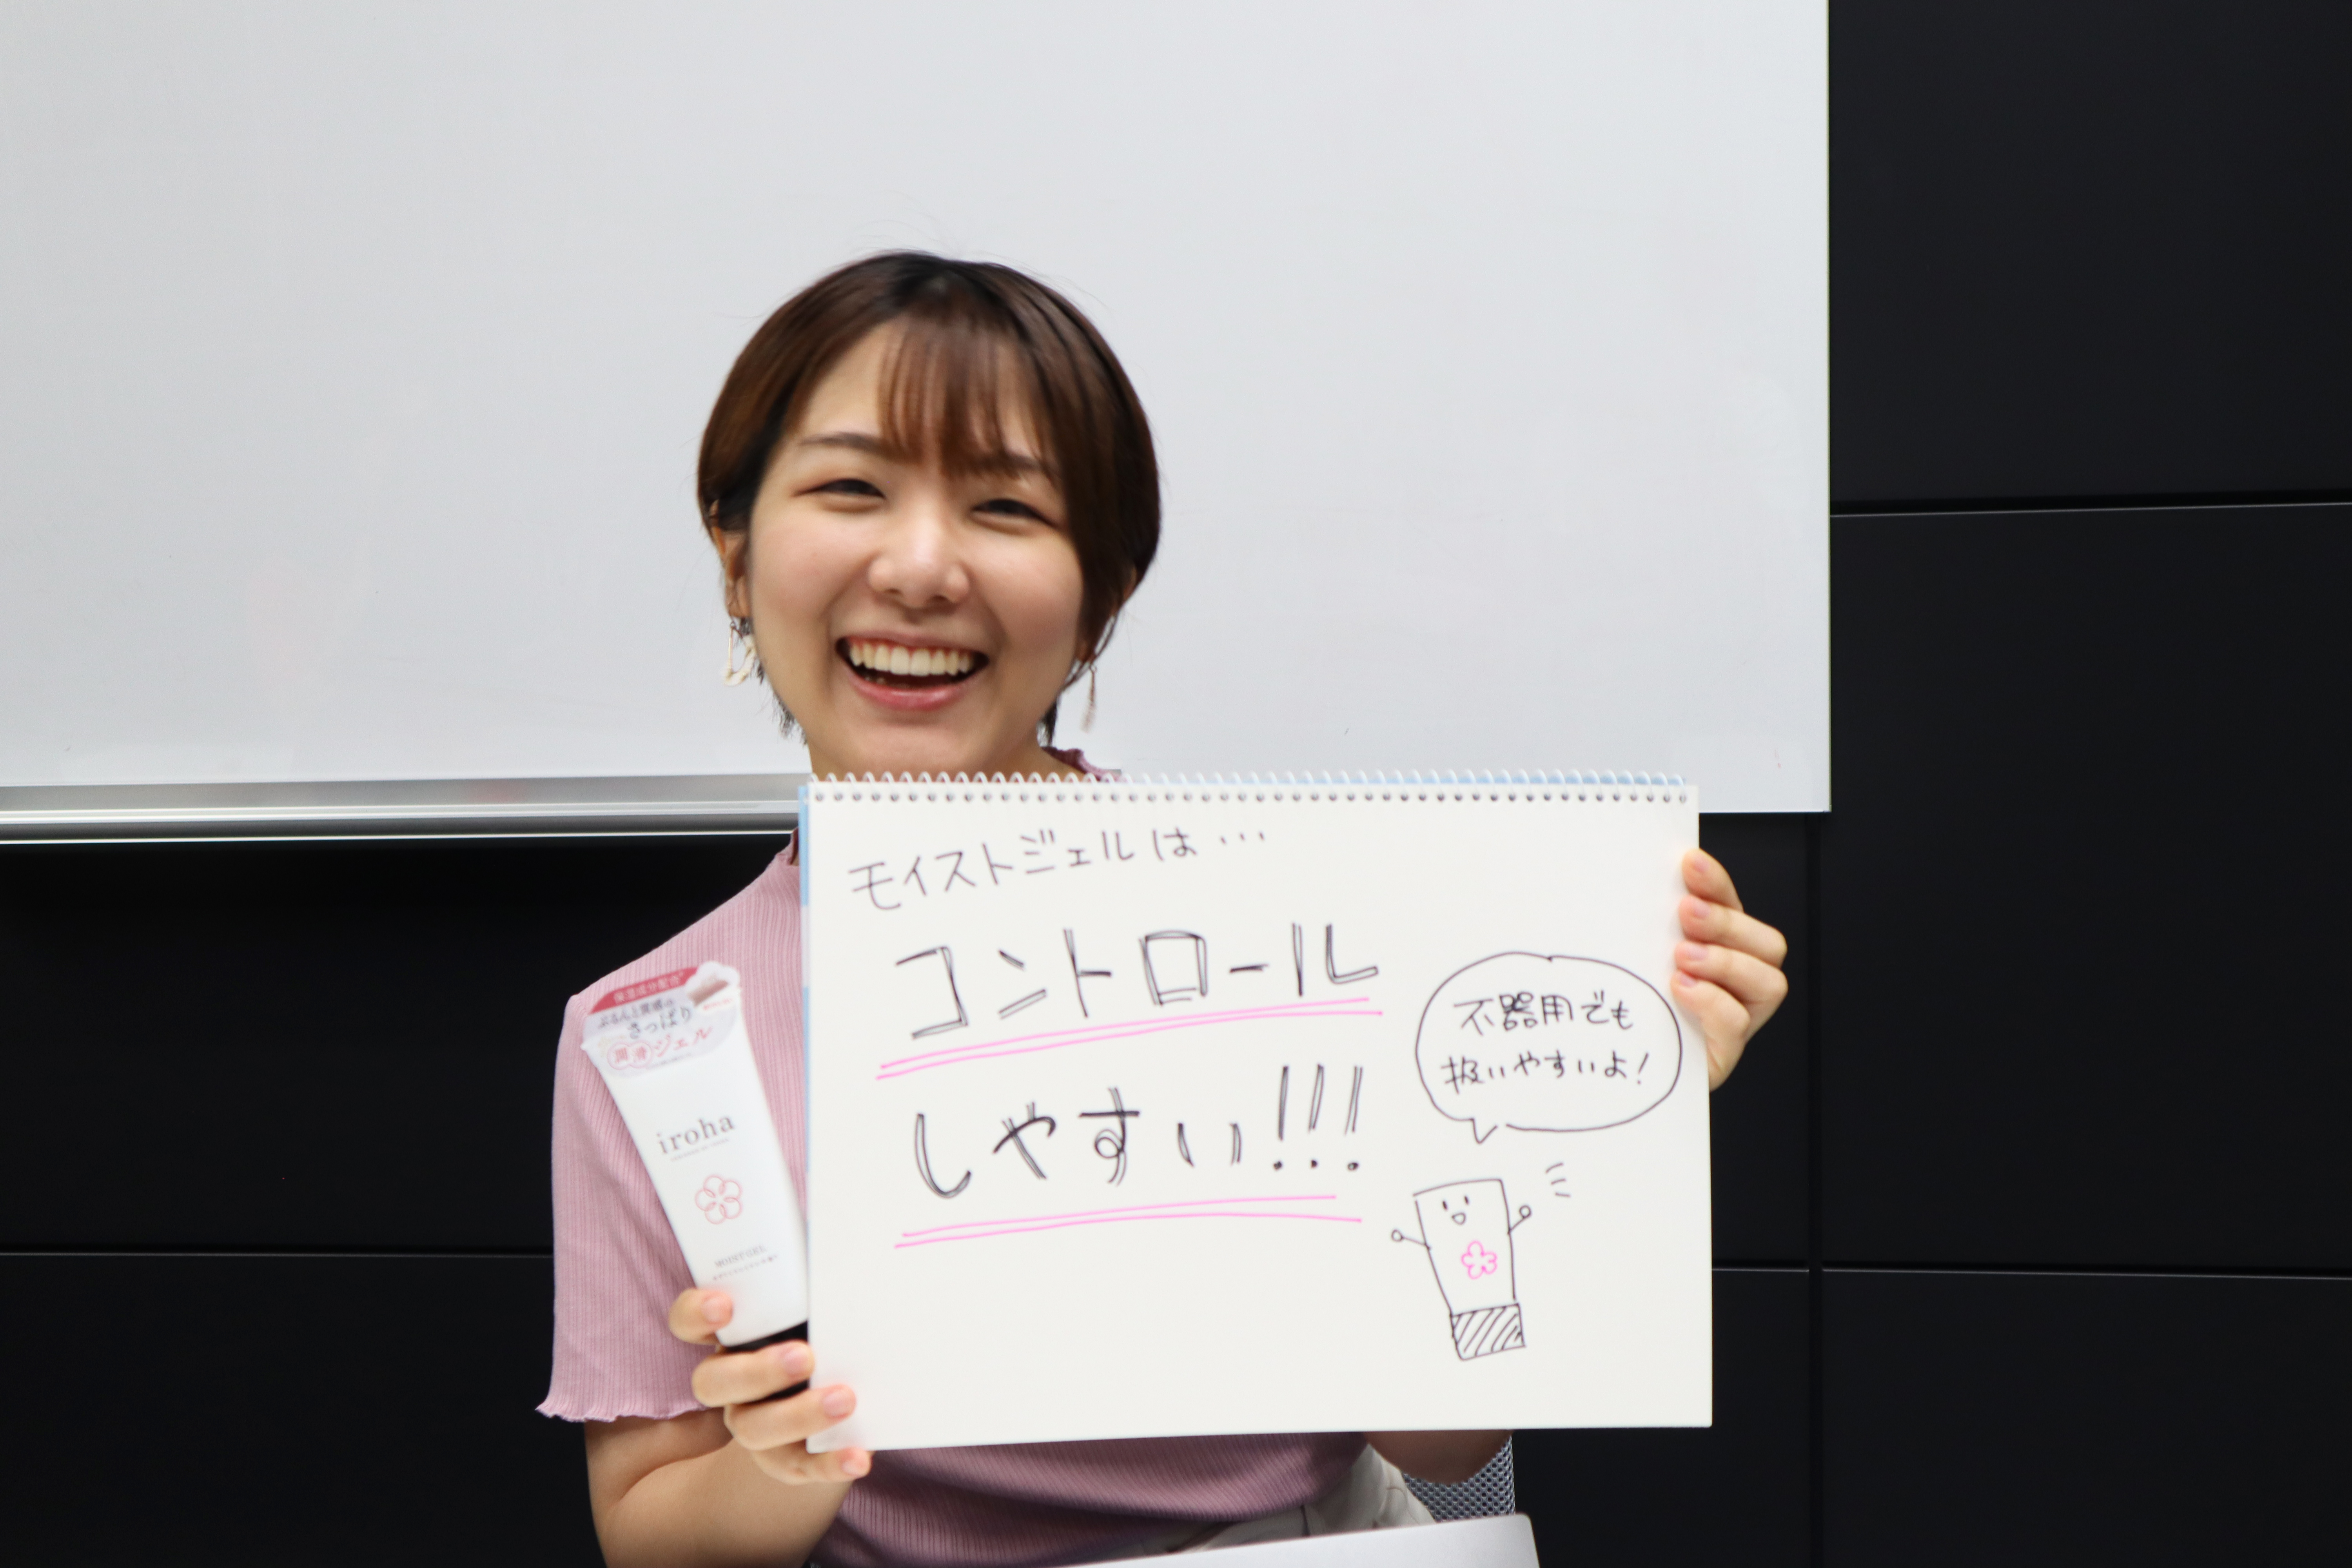 モイストジェルは…
コントロール
しやすい!!!
不器用でも
扱いやすいよ!
保湿成分配合
ぷるんと質感の
さっぱり
潤滑ジェル
iroha
MOIST GEL